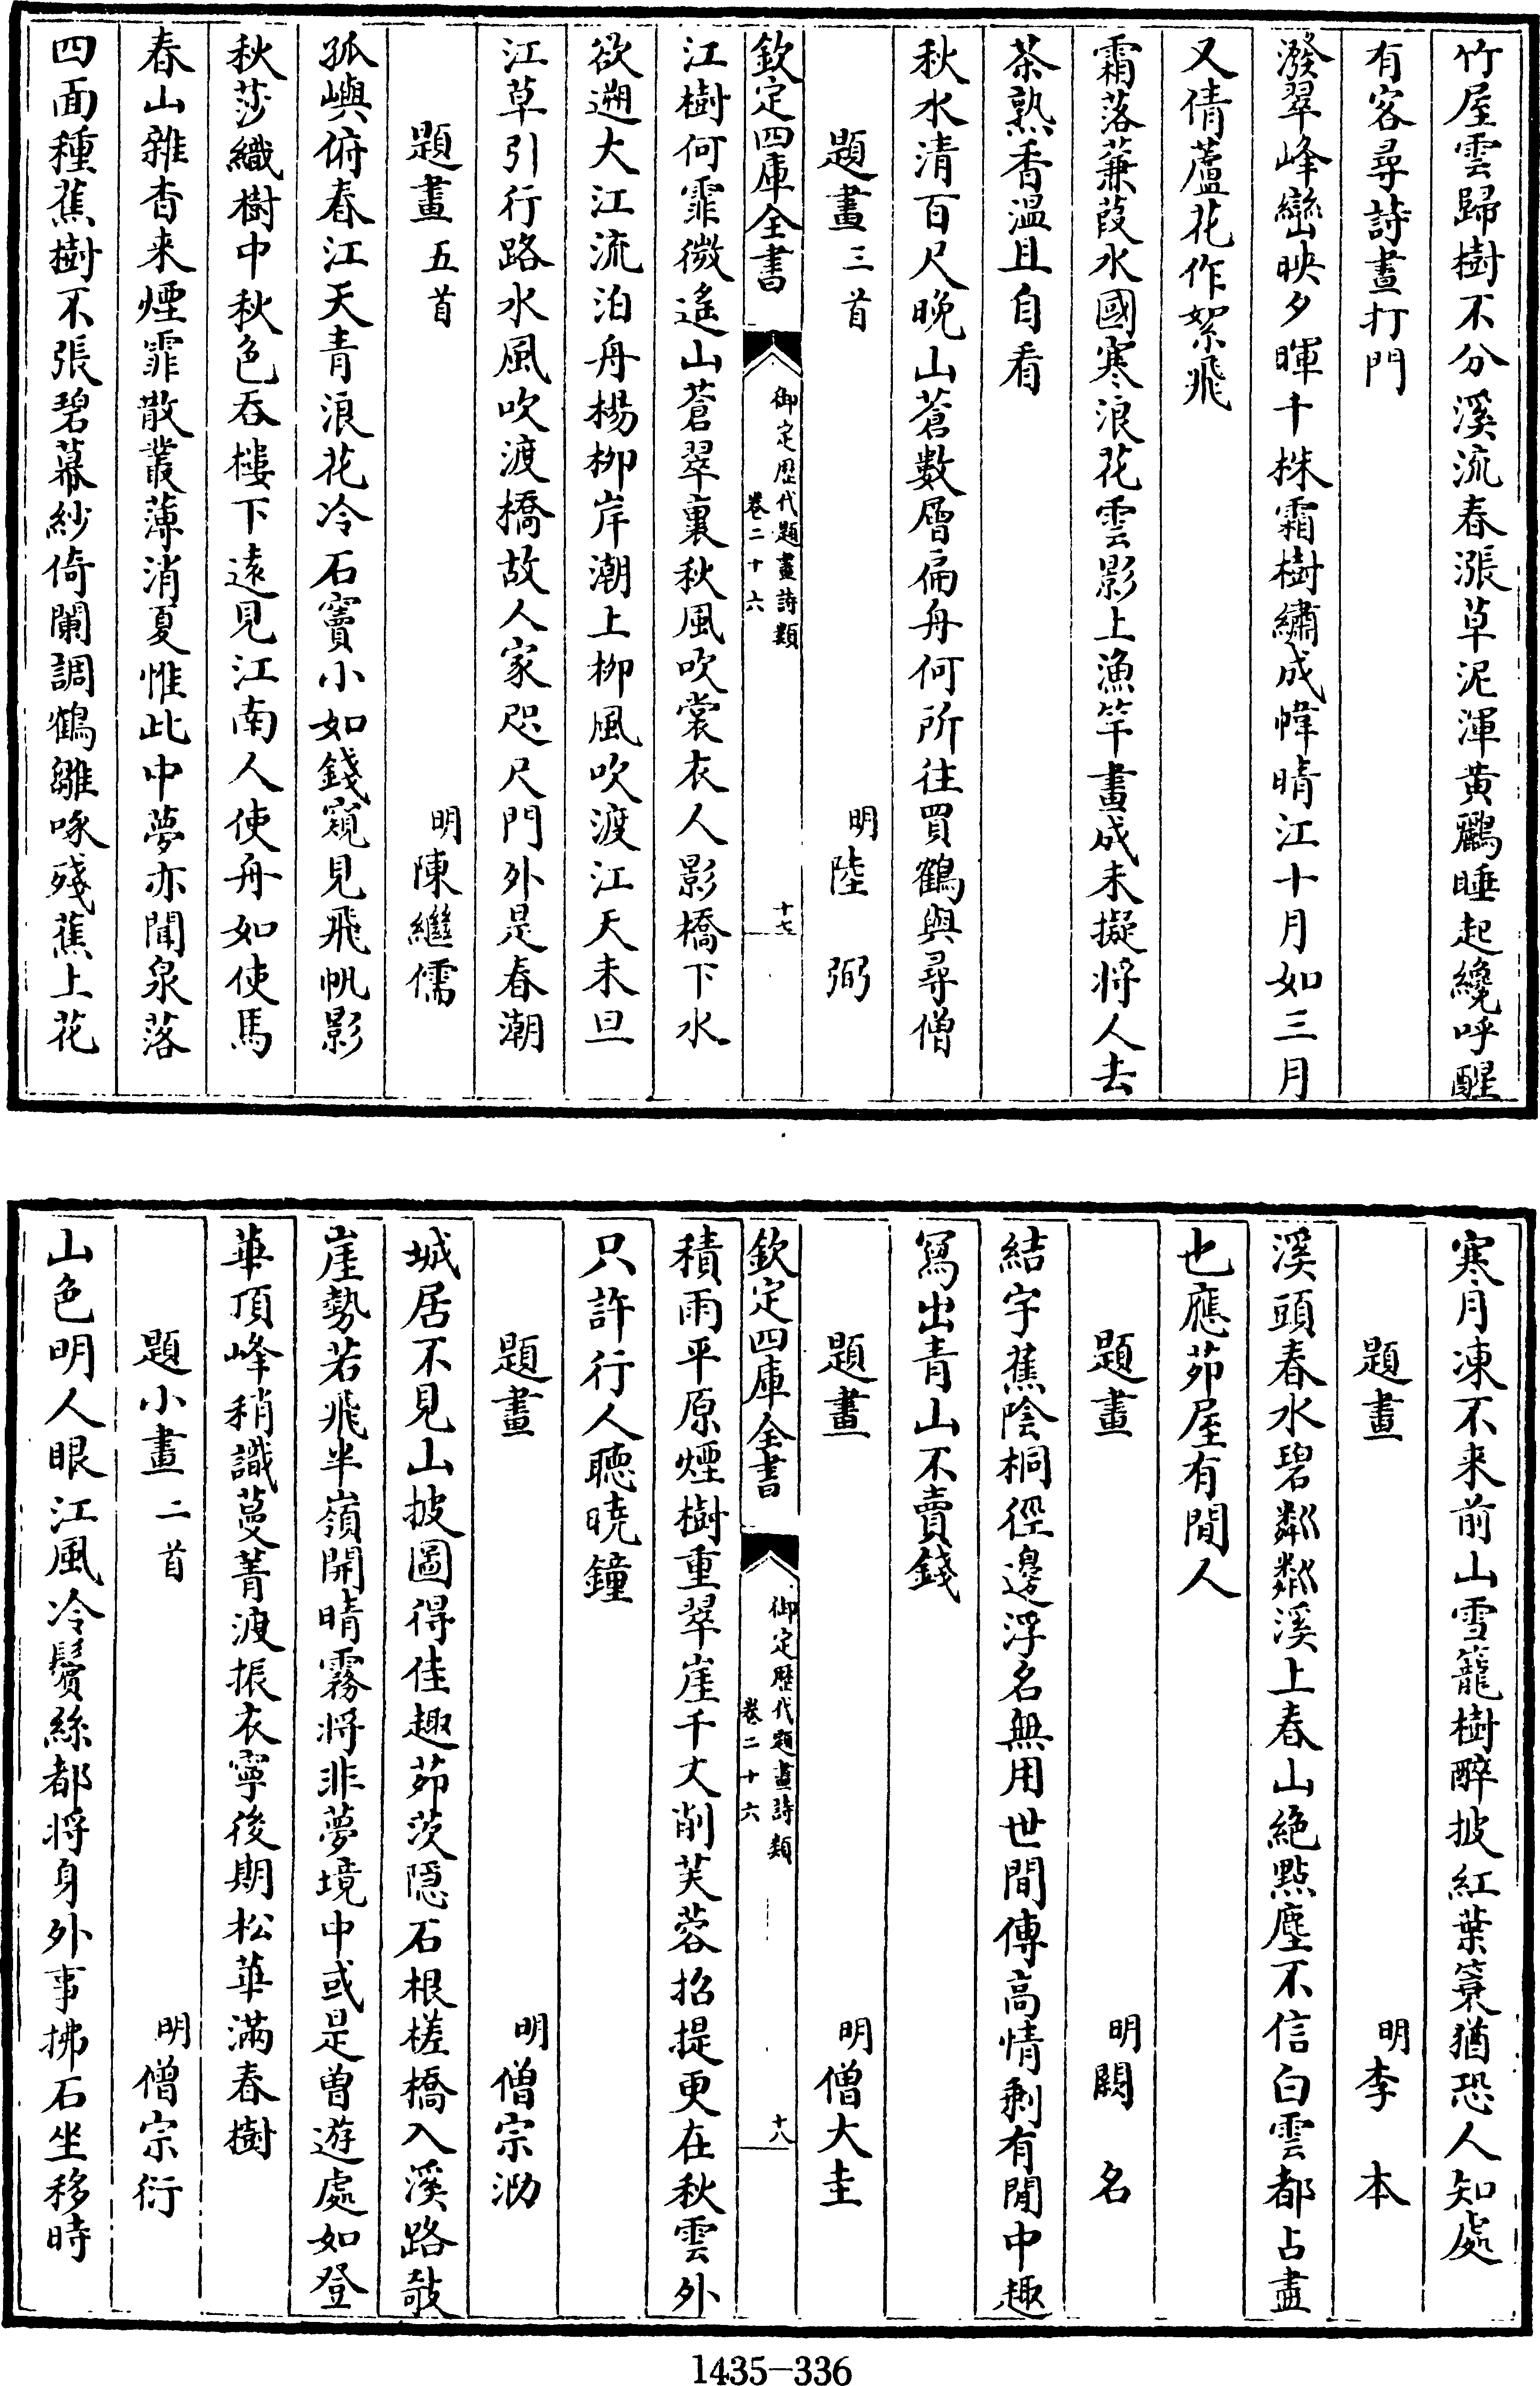 竹屋雲歸樹不分溪流春漲草泥渾黄鸝睡起纔呼醒
有客尋詩畫打門
潑翠峰巒映夕暉千株霜樹繡成幃晴江十月如三月
又倩蘆花作絮飛
霜落蒹葭水國寒浪花雲影上漁竿畫成未擬將人去
茶熟香溫且自看
秋水清百尺晚山蒼數層扁舟何所往買鶴與尋僧
題畫三首 明陸 弼
欽定四庫全書 御定歴代題畫詩類 卷二十六 十七
江樹何霏微遙山蒼翠裏秋風吹裳衣人影橋下水
欲遡大江流泊舟楊柳岸潮上柳風吹渡江天未旦
江草引行路水風吹渡橋故人家咫尺門外是春潮
題畫五首 明陳繼儒
孤嶼俯春江天青浪花冷石竇小如錢窺見飛帆影
秋莎織樹中秋色吞樓下遠見江南人使舟如使馬
春山雜杳来煙霏散叢薄消夏惟此中夢亦聞泉落
四面種蕉樹不張碧幕紗倚闌調鶴雛啄殘蕉上花
寒月凍不来前山雪籠樹醉披紅葉蓑猶恐人知處
題畫 明李 本
溪頭春水碧粼粼溪上春山絶點塵不信白雲都占盡
也應茆屋有閒人
題畫 明闕 名
結宇蕉陰桐徑邊浮名無用世間傳高情剩有閒中趣
寫出青山不賣錢
題畫 明僧大圭
欽定四庫全書 御定歴代題畫詩類 卷二十六 十八
積雨平原煙樹重翠崖千丈削芙蓉招提更在秋雲外
只許行人聽曉鐘
題畫 明僧宗泐
城居不見山披圖得佳趣茆茨隱石根槎橋入溪路攲
崖勢若飛半嶺開晴霧將非夢境中或是曽遊處如登
華頂峰稍識蔓菁渡振衣寧後期松華滿春樹
題小畫二首 明僧宗衍
山色明人眼江風冷鬢絲都將身外事拂石坐移時
1435-336